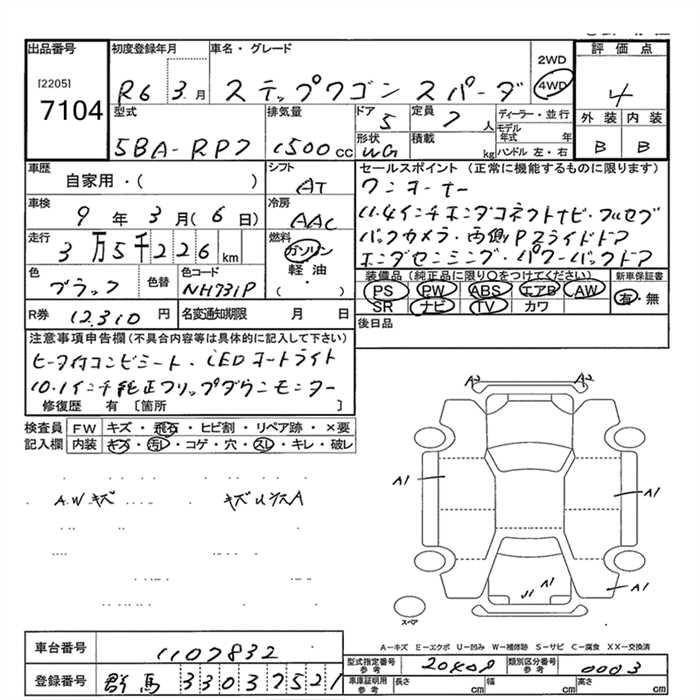 出品番号 初度登録年月 車名・グレード 評価点
[2205] 7104
R6 3月 ステップワゴン スパーダ 2WD 4WD 4
型式 排気量 ドア 定員 ディーラー・並行 外装 内装
5BA-RP7 1500cc 5 7人 モデル年式 年 B B
形状 積載 WG kg ハンドル 左・右
車歴 シフト セールスポイント(正常に機能するものに限ります)
自家用・( ) AT ワンオーナー
車検 冷房 11.4インチホンダコネクトナビ・フルセグ
9年3月(6日) AAC バックカメラ・両側Pスライドドア
走行 燃料 ホンダセンシング・パワーバックドア
3万5千226km ガソリン 軽油・( )
色 色替 色コード 装備品(純正品に限り○をつけてください) 新車保証書
ブラック NH731P PS PW ABS エアB AW 有・無
SR ナビ TV カワ
R券 12,310円 名変通知期限 月 日 後日品
注意事項申告欄(不具合内容等は具体的に記入して下さい)
ヒーター付コンビシート・LEDオートライト
10.1インチ純正フリップダウンモニター
修復歴 有 [箇所 ]
検査員記入欄 FW キズ・飛石・ヒビ割・リペア跡・×要
内装 キズ・汚レ・コゲ・穴・スレ・キレ・破レ
A.Wキズ キズUウスA
A2 A2
A1 A1
A1 A1
スペア
A-キズ E-エクボ U-凹み W-補修跡 S-サビ C-腐食 XX-交換済
車台番号 1107832
型式指定番号 参考 20408 類別区分番号 参考 0003
登録番号 群馬 330 3 7521
車庫証明用 参考 長さ cm 幅 cm 高さ cm